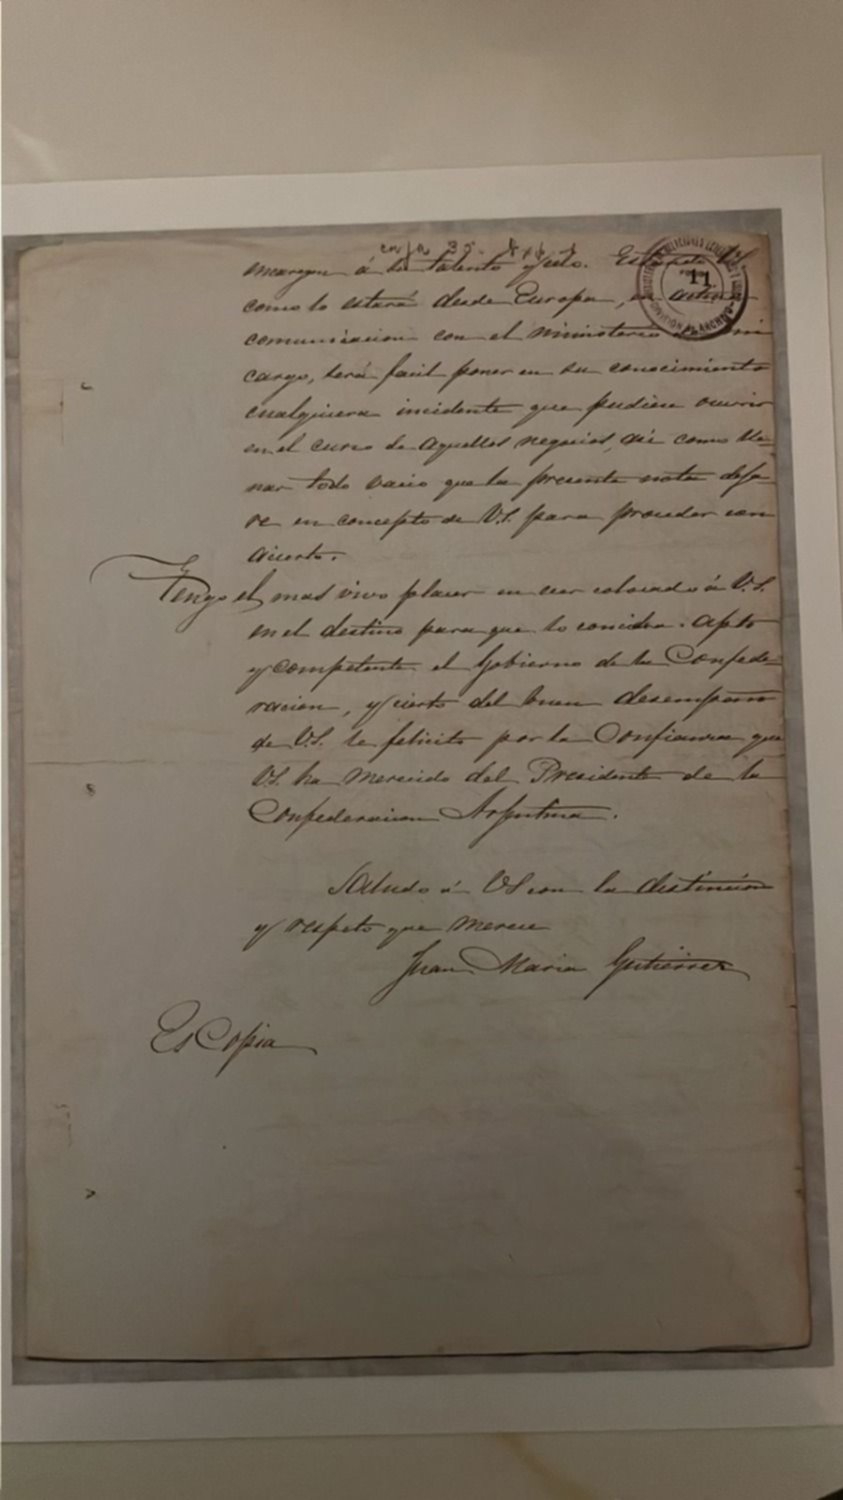 caja 35.
margen á su talento y celo. Estando VS.
como lo estará desde Europa, en activa
comunicacion con el Ministerio mi
cargo, será facil poner en su conocimiento
cualquiera incidente que pudiese ocurrir
en el curso de aquellos negocios, asi como lle-
nar todo vacio que la presente nota deja-
re en concepto de V.S. para proceder con
acierto.
Tengo el mas vivo placer en ver colocado á V.S.
en el destino para que lo considera apto
y competente el Gobierno de la Confede-
racion, y cierto del buen desempeño
de V.S. le felicito por la Confianza que
VS. ha merecido del Presidente de la
Confederacion Argentina.
Saludo á VS con la distincion
y respeto que merece
Juan Maria Gutierrez
Es Copia
11
ARCHIVO